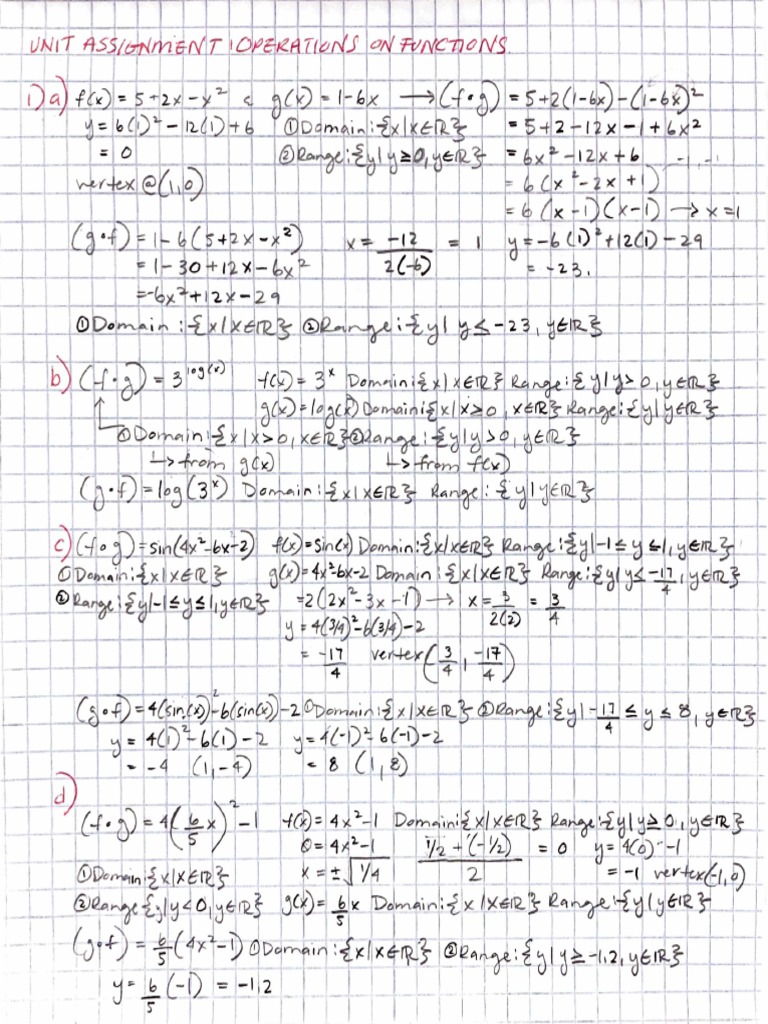 UNIT ASSIGNMENT 1 OPERATIONS ON FUNCTIONS
1) a) f(x) = 5+2x-x² & g(x) = 1-6x → (f∘g) = 5+2(1-6x)-(1-6x)²
y = 6(1)²-12(1)+6 ① Domain: {x|x∈ℝ} = 5+2-12x-1+6x²
= 0 ② Range: {y|y≥0, y∈ℝ} = 6x²-12x+6 -1, -1
vertex @(1,0) = 6(x²-2x+1)
= 6(x-1)(x-1) → x=1
(g∘f) = 1-6(5+2x-x²) x = -12/2(-6) = 1 y = -6(1)²+12(1)-29
= 1-30+12x-6x² = -23.
= -6x²+12x-29
① Domain: {x|x∈ℝ} ② Range: {y|y≤-23, y∈ℝ}
b) (f∘g) = 3^log(x) f(x) = 3^x Domain: {x|x∈ℝ} Range: {y|y>0, y∈ℝ}
g(x) = log(x) Domain: {x|x≥0, x∈ℝ} Range: {y|y∈ℝ}
① Domain: {x|x>0, x∈ℝ} ② Range: {y|y>0, y∈ℝ}
↳ from g(x) ↳ from f(x)
(g∘f) = log(3^x) Domain: {x|x∈ℝ} Range: {y|y∈ℝ}
c) (f∘g) = sin(4x²-6x-2) f(x) = sin(x) Domain: {x|x∈ℝ} Range: {y|-1≤y≤1, y∈ℝ}
① Domain: {x|x∈ℝ} g(x) = 4x²-6x-2 Domain: {x|x∈ℝ} Range: {y|y≤-17/4, y∈ℝ}
② Range: {y|-1≤y≤1, y∈ℝ} = 2(2x²-3x-1) → x = 3/2(2) = 3/4
y = 4(3/4)²-6(3/4)-2
= -17/4 vertex (3/4, -17/4)
(g∘f) = 4(sin(x))²-6(sin(x))-2 ① Domain: {x|x∈ℝ} ② Range: {y|-17/4≤y≤8, y∈ℝ}
y = 4(1)²-6(1)-2 y = 4(-1)²-6(-1)-2
= -4 (1,-4) = 8 (1,8)
d)
(f∘g) = 4(6/5 x)²-1 f(x) = 4x²-1 Domain: {x|x∈ℝ} Range: {y|y≥0, y∈ℝ}
0 = 4x²-1 1/2+(-1/2)/2 = 0 y = 4(0)²-1
① Domain {x|x∈ℝ} x = ±√1/4 = -1 vertex(-1,0)
② Range {y|y<0, y∈ℝ} g(x) = 6/5 x Domain: {x|x∈ℝ} Range: {y|y∈ℝ}
(g∘f) = 6/5(4x²-1) ① Domain: {x|x∈ℝ} ② Range: {y|y≥-1.2, y∈ℝ}
y = 6/5(-1) = -1.2